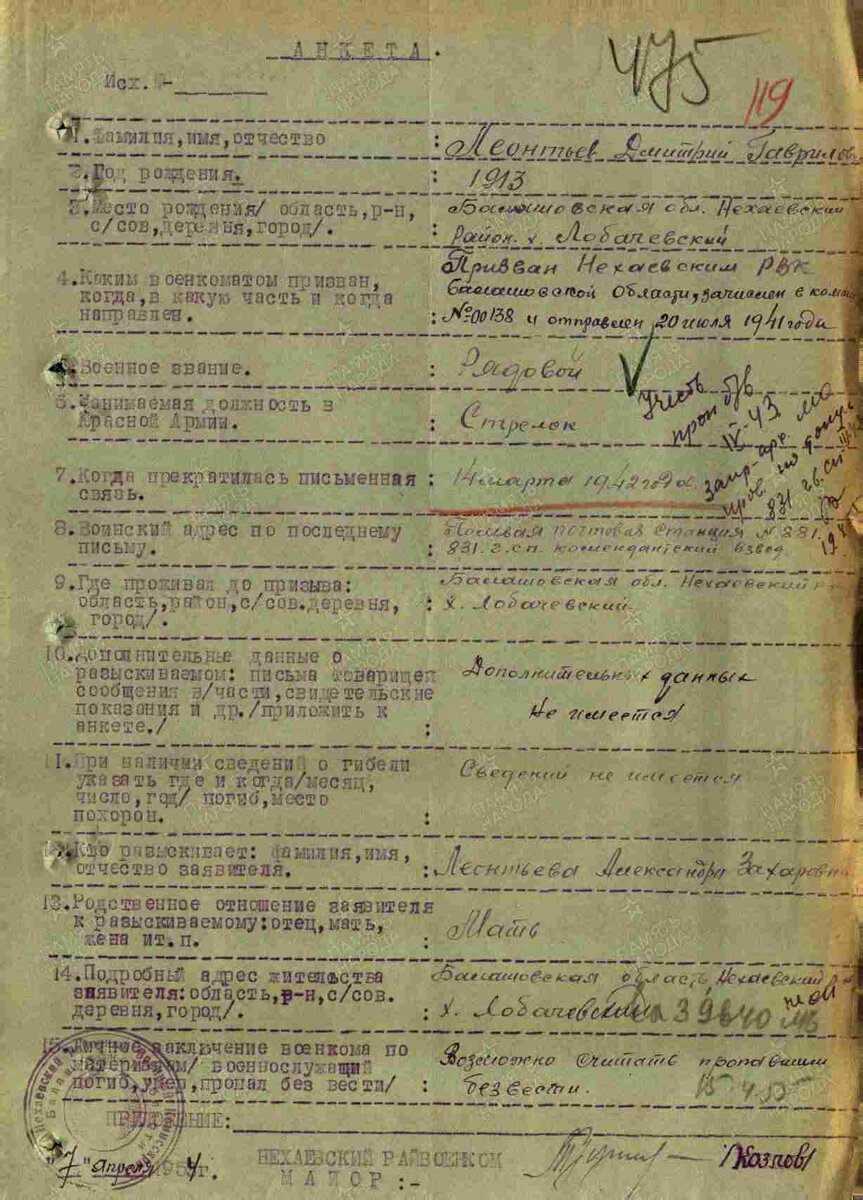 АНКЕТА.
475
119
Исх.№-
1.Фамилия,имя,отчество : Леонтьев Дмитрий Гаврилов
2.Год рождения. : 1913
3.Место рождения/ область,р-н, Балашовская обл. Нехаевский
с/сов,деревня,город/. : район. х Лобачевский
Призван Нехаевским РВК
4.Каким военкоматом призван,
когда,в какую часть и когда Балашовской Области, зачислен в кома
направлен. : №00138 и отправлен 20 июля 1941 года
5.Военное звание. : Рядовой
6.Занимаемая должность в
Красной Армии. : Стрелок
Учесть
проп б/в
IX-43
7.Когда прекратилась письменная : 14 марта 1942 года.
связь.
831 гв. сп
8.Воинский адрес по последнему Полевая почтовая Станция N 881.
письму. : 831. г.сп. комендантский взвод.
9.Где проживал до призыва: Балашовская обл. Нехаевский р-н
область,район,с/сов.деревня, : х. Лобачевский.
город/.
10.Дополнительные данные о
разыскиваемом: письма товарищей Дополнительных данных
сообщения в/части,свидетельские
показания и др./приложить к Не имеется
анкете./ :
11.При наличии сведений о гибели Сведений не имеется
указать где и когда/месяц,
число,год/ погиб,место
похорон. :
12.Кто разыскивает: фамилия,имя,
отчество заявителя. : Леонтьева Александра Захаровна
13.Родственное отношение заявителя
к разыскиваемому:отец,мать, : Мать
жена ит.п.
14.Подробный адрес жительства Балашовская область Нехаевский р-н
заявителя:область,р-н,с/сов. : х. Лобачевский
деревня,город/. 39640
15.Личное заключение военкома по Возможно считать пропавшим
материалам/ военнослужащий
погиб,умер,пропал без вести/ : без вести.
ПРИЛОЖЕНИЕ:
"7" апреля 1954 г. НЕХАЕВСКИЙ РАЙВОЕНКОМ
МАЙОР :- /Козлов/